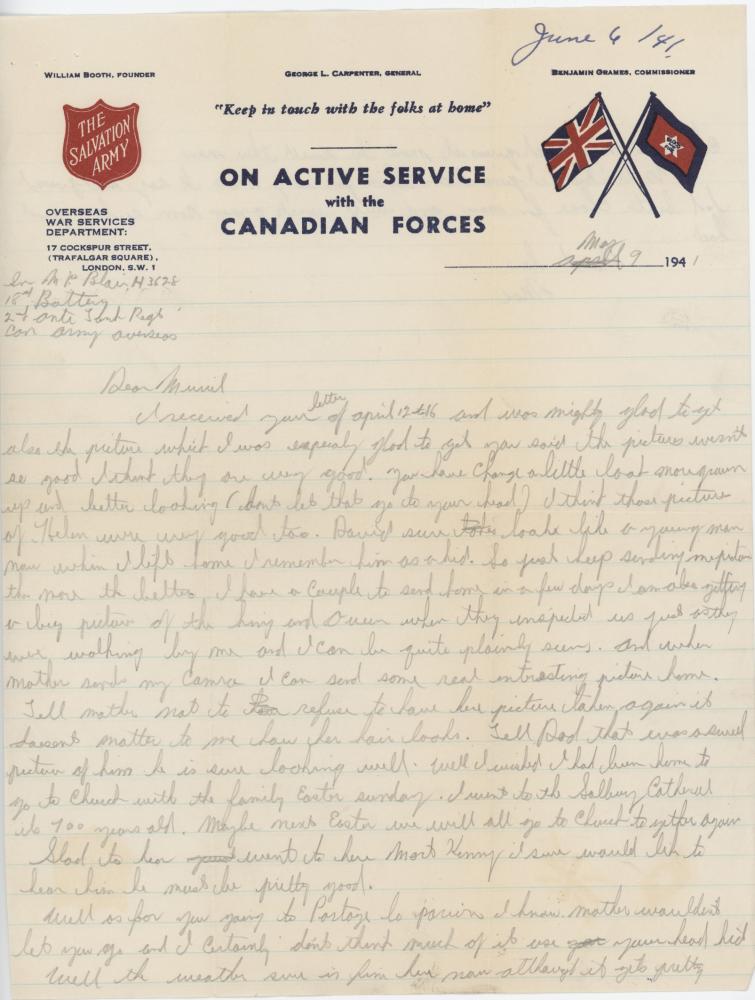 June 6 /41
WILLIAM BOOTH, FOUNDER
GEORGE L. CARPENTER, GENERAL
BENJAMIN ORAMES, COMMISSIONER
"Keep in touch with the folks at home"
THE
SALVATION
ARMY
ON ACTIVE SERVICE
with the
CANADIAN FORCES
OVERSEAS
WAR SERVICES
DEPARTMENT:
17 COCKSPUR STREET,
(TRAFALGAR SQUARE),
LONDON, S.W. 1
May
april 9 1941
M P Blair H3628
18th Battery
2nd anti Tank Regt
Can army overseas
Dear Muriel
I received your letter of april 12 & 16 and was mighty glad to get
also the picture which I was especialy glad to get you said the pictures wernt
so good I think they are very good. you have change a little lo at more grown
up and better looking (dont let that go to your head) I think those picture
of Helen were very good too. David sure looks like a young man
now when I left home I remember him as a kid. So just keep sending me picture
the more the better, I have a couple to send home in a few days I am also getting
a big picture of the King and Queen when they inspected us just as they
were walking by me and I can be quite plainly seen. and when
mother sends my Camra I can send some real intrasting picture home.
Tell mother not to refuse to have here picture taken again it
doesent matter to me how her hair looks. Tell Dad that was a swell
picture of him he is sure looking well. Well I wished I had been home to
go to Church with the family Easter sunday. I went to the Salbury Catheral
its 700 years old. Maybe next Easter we will all go to Church to gether again
Glad to hear went to here Mart Kenny I sure would like to
hear him he must be pretty good.
Well as for you going to Portage la prarion I know mother wouldent
let you go and I certainly dont think much of it use your head kid
Well the weather sure is fine here now although it gets pretty